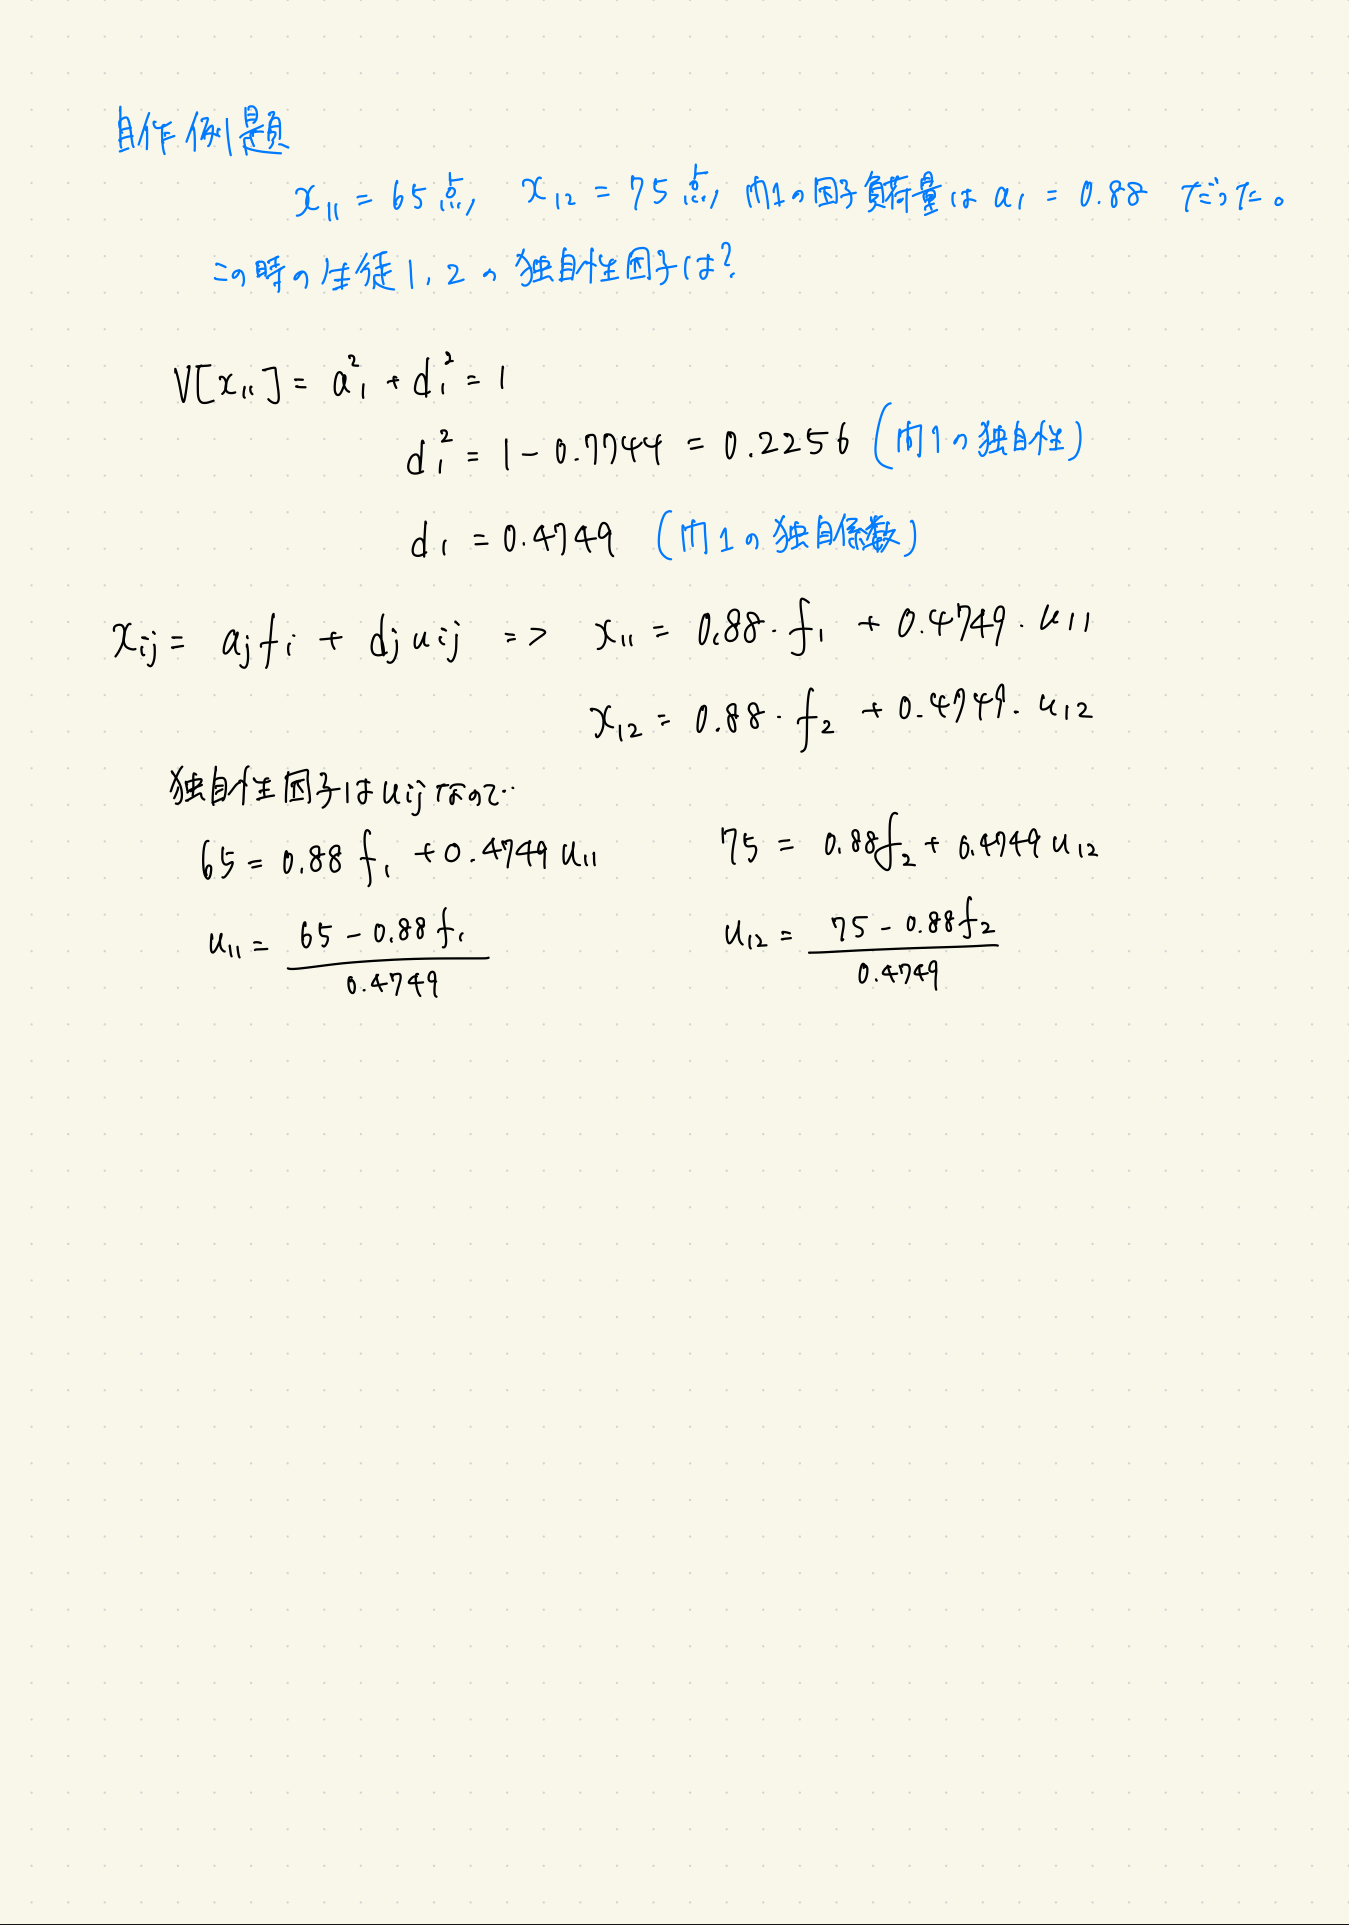 自作例題
x₁₁ = 65点, x₁₂ = 75点, 内1の因子負荷量は a₁ = 0.88 だった。
この時の生徒1, 2の独自性因子は?
V[x₁₁] = a²₁ + d₁² = 1
d₁² = 1 - 0.7744 = 0.2256 (内1の独自性)
d₁ = 0.4749 (内1の独自係数)
xᵢⱼ = aⱼfᵢ + dⱼuᵢⱼ => x₁₁ = 0.88・f₁ + 0.4749・u₁₁
x₁₂ = 0.88・f₂ + 0.4749・u₁₂
独自性因子はuᵢⱼなので‥
65 = 0.88 f₁ + 0.4749 u₁₁ 75 = 0.88f₂ + 0.4749 u₁₂
u₁₁ = (65 - 0.88 f₁) / 0.4749 u₁₂ = (75 - 0.88f₂) / 0.4749